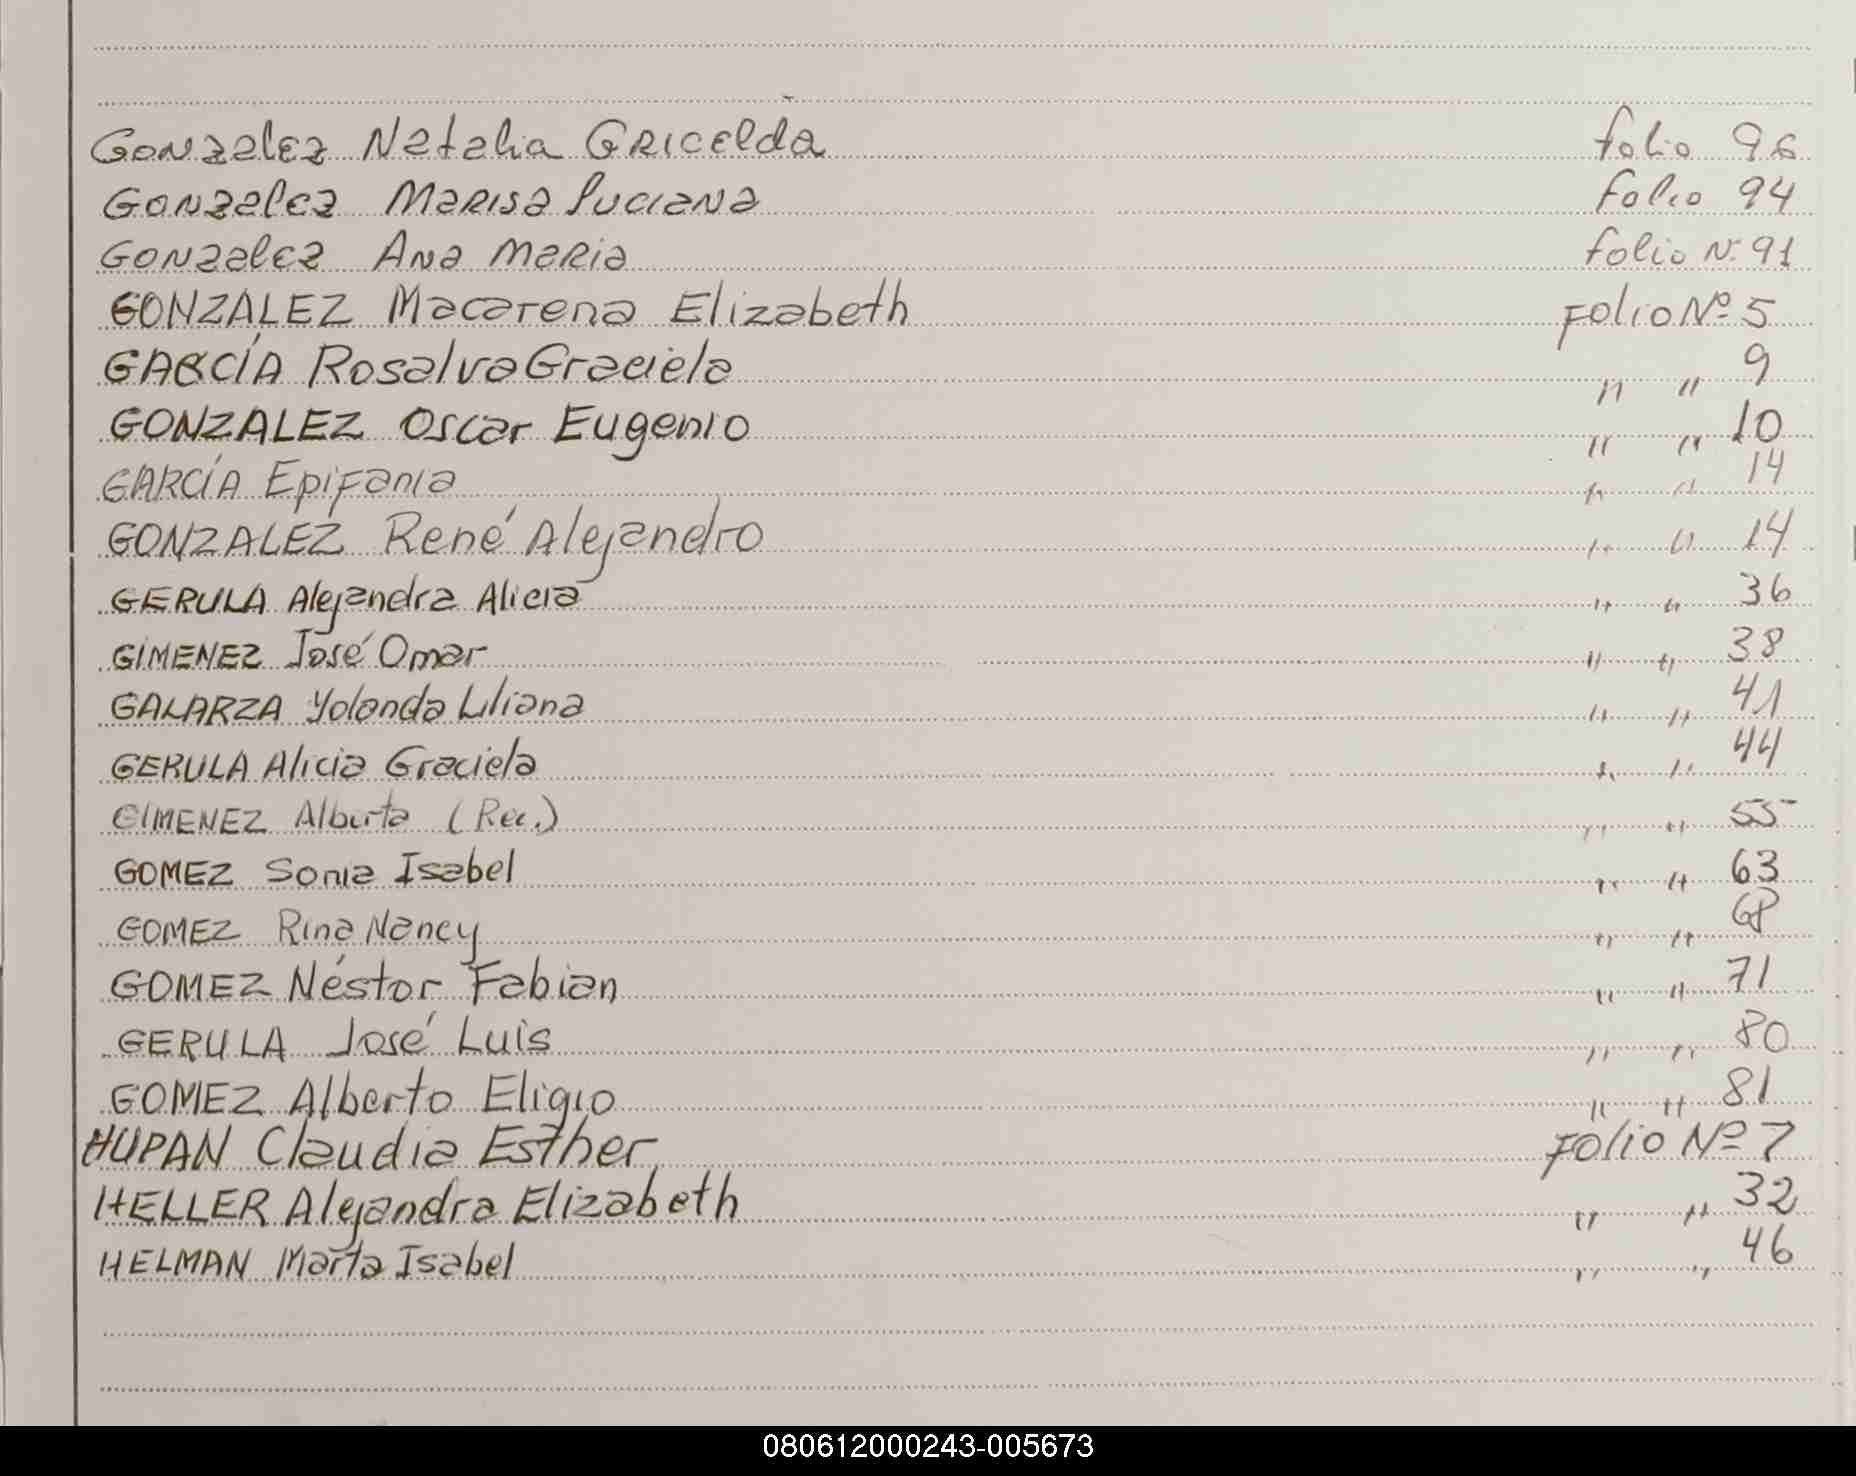 Gonzalez Natalia Gricelda folio 96
Gonzalez Marisa Luciana folio 94
Gonzalez Ana Maria folio N: 91
GONZALEZ Macarena Elizabeth Folio Nº 5
GARCÍA Rosalva Graciela " " 9
GONZALEZ Oscar Eugenio " " 10
GARCÍA Epifania " " 14
GONZALEZ René Alejandro " " 14
GERULA Alejandra Alicia " " 36
GIMENEZ José Omar " " 38
GALARZA Yolanda Liliana " " 41
GERULA Alicia Graciela " " 44
GIMENEZ Alberto (Rec.) " " 55
GOMEZ Sonia Isabel " " 63
GOMEZ Rina Nancy " " 68
GOMEZ Néstor Fabian " " 71
GERULA José Luis " " 80
GOMEZ Alberto Eligio " " 81
HUPAN Claudia Esther Folio Nº 7
HELLER Alejandra Elizabeth " " 32
HELMAN Marta Isabel " " 46
080612000243-005673